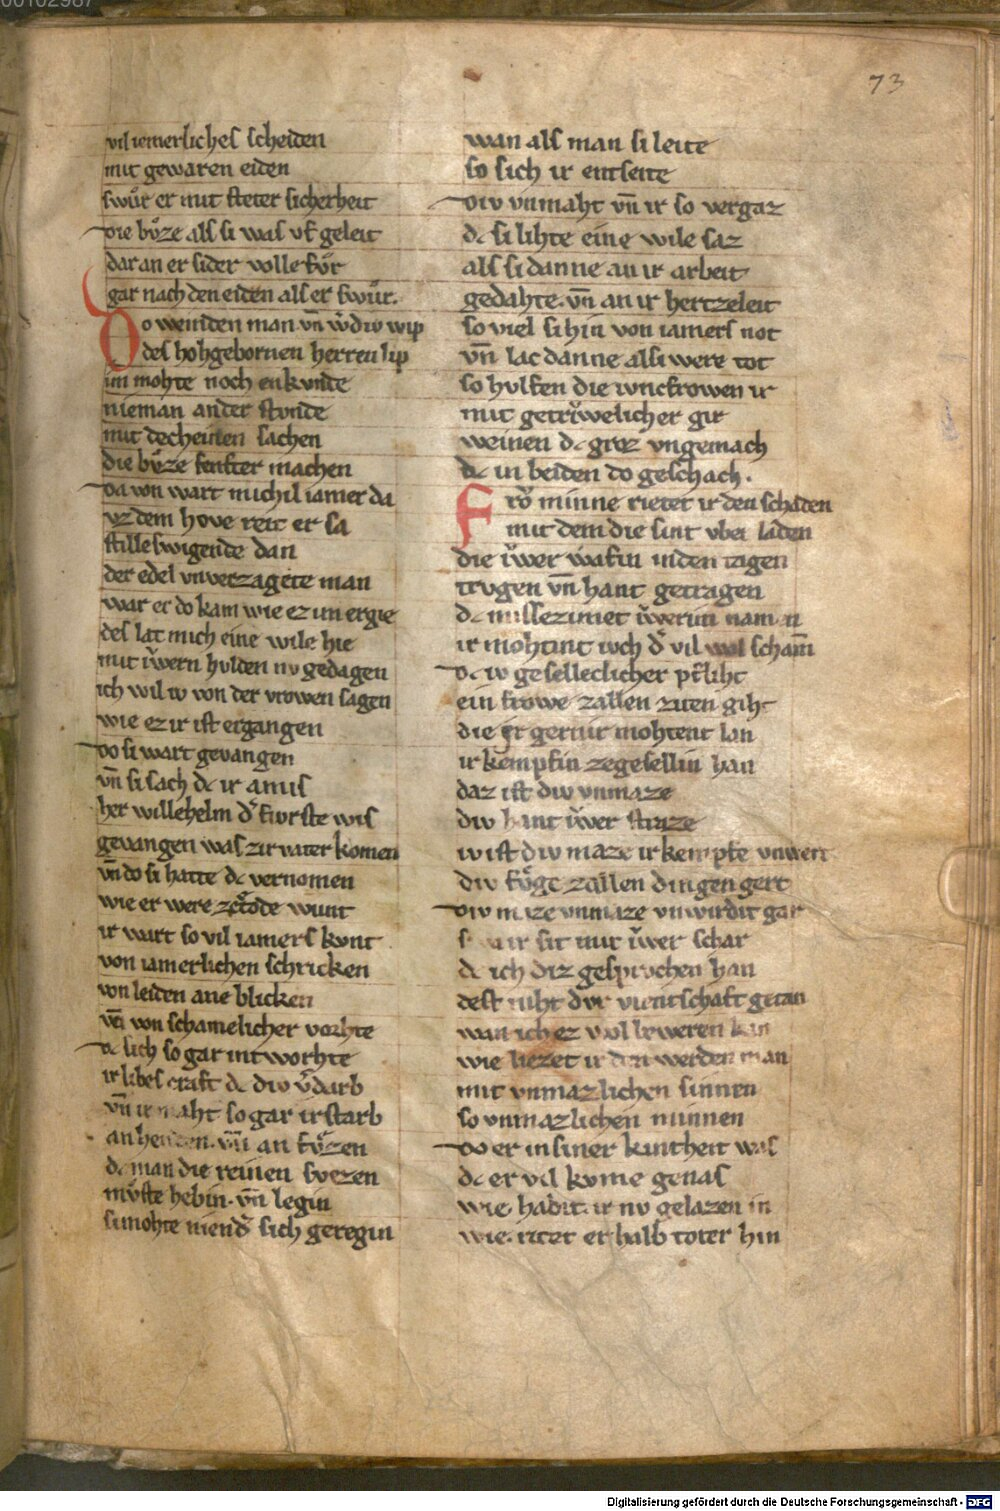 73
vil iemerliches scheiden
mit gewaren eiden
swůr er mit steter sicherheit
die bůze als si was vf geleit
dar an er sider volle fůr
gar nach den eiden als er swůr.
Do weinden man vn̄ vv̄diu wip
des hohgebornen herren lip
im mohte noch enkvnde
nieman ander stvnde
mit decheinen sachen
die bůze senfter machen
da von wart michil iamer da
vz dem hove reit er sa
stille swigende dan
der edel vnverzagete man
war er do kam wie ez im ergie
des lat mich eine wile hie
mit v̓wern hvlden nv gedagen
ich wil iv von der vrowen sagen
wie ez ir ist ergangen
do si wart gevangen
vn̄ si sach dc ir amis
her willehelm d̓ fvrste wis
gevangen was zir vater komen
vn̄ do si hatte dc vernomen
wie er were ze tode wunt
ir wart so vil iamers kvnt
von iamerlichen schricken
von leiden ane blicken
vn̄ von schamelicher vorhte
dc sich so gar intworhte
ir libes craft dc div v̓darb
vn̄ ir maht so gar irstarb
an henden. vn̄ an fv̊zen
dc man die reinen svezen
mv̊ste hebin. vn̄ legin
si mohte niend̓ sich geregin
wan als man si leite
so sich ir entseite
div vnmaht vn̄ ir so vergaz
dc si lihte eine wile saz
als si danne an ir arbeit
gedahte. vn̄ an ir hertzeleit
so viel si hin von iamers not
vn̄ lac danne als si were tot
so hvlfen die ivncfrowen ir
mit getrv̓welicher gir
weinen dc groz vngemach
dc in beiden do geschach.
Frŏ minne rietet ir den schaden
mit dem die sint vber laden
die v̓wer wafin in den tagen
trvgen vn̄ hant getragen
dc missezimet v̓werim namen
ir mohtint ivch d̓ vil wol scham̄
dc iv geselleclicher pfliht
ein frowe zallen ziten giht
die ir gerne mohtent lan
ir kempfin ze gesellin han
daz ist div vnmaze
div hant v̓wer straze
iv ist div maze ir kempfe vnwert
div fv̊ge zallen dingen gert
div maze vnmaze vnwirdit gar
mit v̓wer schar
dc ich diz gesprochen han
dest niht dvr vientschaft getan
wan ich ez wol beweren kan
wie liezet ir den werden man
mit vnmazlichen sinnen
so vnmazlichen minnen
do er in siner kintheit was
dc er vil kvme genas
wie habit ir nv gelazen in
wie ritet er halb toter hin
Digitalisierung gefördert durch die Deutsche Forschungsgemeinschaft - DFG